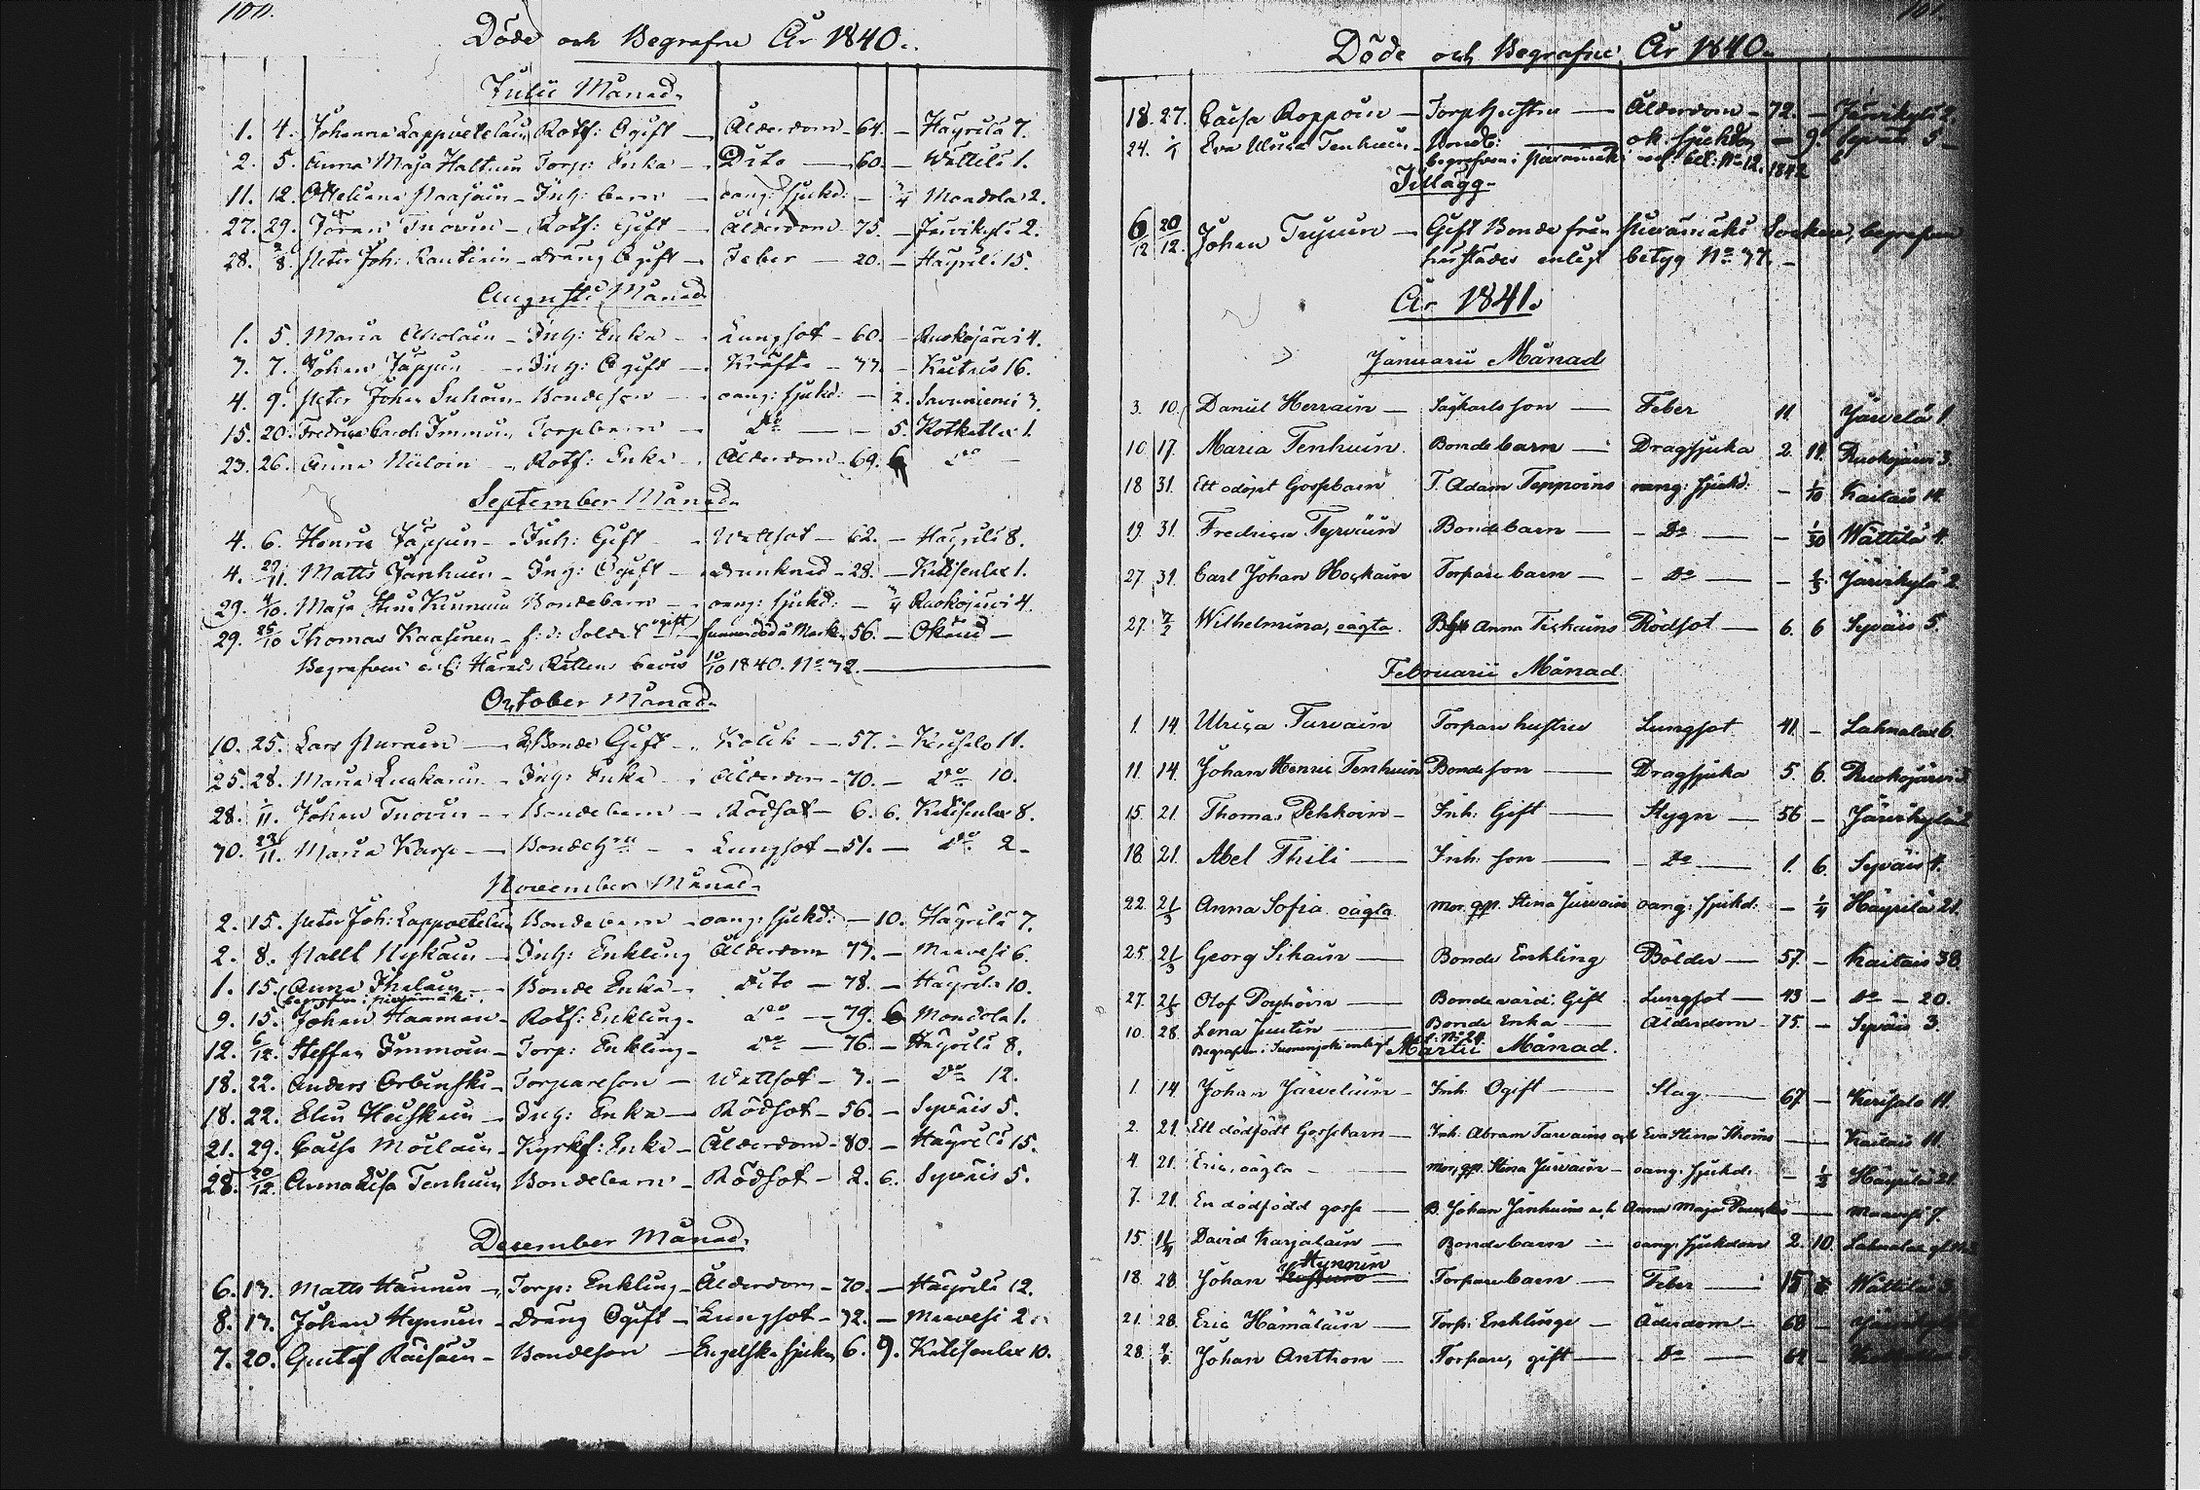 100.
Döde och Begrafne År 1840.
Julii Månad.
1. 4. Johanna Lappveteläin Rotf: Ogift — Ålderdom - 64. — Häyrilä 7.
2. 5. Anna Maja Haltuin Torp: Enka — Dito — 60. — Wättilä 1.
11. 12. Inh: barn — oang: sjukd: — 3/4 Mondola 2.
27. 29. Göran Inovin — Rotf: Gift — Ålderdom 75. — Järvikylä 2.
28. 2/8. Peter Joh: Rautiain — Dräng Ogift — Feber — 20. — Häyrilä 15.
Augusti Månad
1. 5. Maria — Inh: Enka — Lungsot - 60. — Ruokojärvi 4.
7. 7. Johan Jäppin — Inh: Ogift — Kräfta — 77. — Kaitais 16.
4. 9. Peter Johan Suhoin — Bondeson — oang: sjukd: — 2. Savuniemi 3.
15. 20. Fredrica Carol: Immoin, Torpebarn — Do — 5. Kotkatlax 1.
23. 26. Anna Niiloin — Rotf: Enka — Ålderdom - 69. 6 Do —
September Månad.
4. 6. Henric Jäppin — Inh: Gift — Wattsot — 62. — Häyrilä 8.
4. 29/11. Matts Janhuin — Inh: Ogift — drunknad - 28. — Katisenlax 1.
29. 4/10. Maja Stina Kinnuin Bondebarn — oang: sjukd: — 3/4 Ruokojärvi 4.
29. 25/10 Thomas Kaasinen — f: d: Soldat ogift funnen död å Marken 56. — Okänd —
Begrafven e: l: Härads Rättens bevis 10/10 1840. No 72.
October Månad.
10. 25. Lars Purain — E. Bonde Gift — Kolik — 57. — Kerisalo 11.
25. 28. Maria Luukain — Inh: Enka — Ålderdom - 70. — Do 10.
28. 1/11. Johan Inovin — Bondebarn — Rödsot — 6. 6. Katisenlax 8.
70. 22/11. Maria Karp — Bondehru — Lungsot — 51. — Do 2 —
November Månad.
2. 15. Peter Joh: Lappvetelin Bondebarn — oang: sjukd: — 10. Häyrilä 7.
2. 8. Påhl Nykäin — Inh: Enkling Ålderdom 77. — Maavesi 6.
1. 15. Anna Ihalain — Bonde Enka — Dito — 78. — Häyrilä 10.
begrafven i Piexämäki.
9. 15. Johan Haaman — Rotf: Enkling — Do — 79. 6 Mondola 1.
12. 6/12. Steffan Immoin — Torp: Enkling — Do — 76. — Häyrilä 8.
18. 22. Anders Orbinski — Torpareson — Wattsot — 7. — Do 12.
18. 22. Elin Heiskain — Inh: Enka — Rödsot — 56. — Syväis 5.
21. 29. Caisa Moilain — Kyrkf: Enka — Ålderdom — 80. — Häyrilä 15.
28. 20/12. Anna Lisa Tenhuin Bondebarn — Rödsot — 2. 6. Syväis 5.
December Månad.
6. 13. Matts Hännin — Torp: Enkling — Ålderdom — 70. — Häyrilä 12.
8. 13. Johan Hynnin — Dräng Ogift — Lungsot — 72. — Maavesi 2.
7. 20. Gustaf Räisäin — Bondeson — Engelska sjukan 6. 9. Katisenlax 10.
101.
Döde och Begrafne År 1840.
18. 27. Caisa Roppoin — Torp hustru — Ålderdom — 72. — Järvikylä 2.
24. 1/1 Eva Ulrica Tenhuin — Bondeb: — ok. sjukdom — 9. Syväis 5 —
begrafven i Piexämäki enl. bet: No 12. 1842
Tillägg.
6/12 20/12. Johan — Gift Bonde från Piexämäki Socken, begrafven
härstädes enligt betyg No 77. —
År 1841.
Januarii Månad
3. 10. Daniel Herrain — Sågkarls son — Feber 11. Järvelä 1.
10 17. Maria Tenhuin. Bondebarn — Dragsjuka 2. 11. Ruokojärvi 3.
18 31. Ett odöpt Gossebarn T. Adam Teppoins oang: sjukd: — 1/10 Kaitais 14.
19. 31. Fredrica Tyrväin Bondebarn — Do — 1/30 Wättilä 4.
27. 31. Carl Johan Hockain Torpare barn — Do — Järvikylä 2.
27. 7/2 Wilhelmina, oägta. Anna Tiskains Rödsot — 6. 6 Syväis 5.
Februarii Månad
1. 14. Ulrica Turvain Torpare hustru Lungsot 41 — Lahnalax 6.
11. 14. Johan Henric Tenhuin Bondeson — Dragsjuka 5. 6. Ruokojärvi 3.
15. 21. Thomas Pehkoin — Inh: Gift — Stygn — 56 — Järvikylä 2
18 21. Abel Thili — Inh: son — Do — 1. 6. Syväis 4.
22. 21/3 Anna Sofia oägta mor. qp. Stina Jurvain oang: sjukd: — 1/4 Häyrilä 21.
25. 21/3 Georg Sihvin — Bonde Enkling Bölder — 57. — Kaitais 38.
27. 21/3 Olof Poyhöin — Bonde värd: Gift Lungsot — 43 — Do — 20.
10. 28. Lena Juntin — Bonde Enka — Ålderdom — 75. — Syväis 3.
Begrafven i enligt bet: No 29.
Martii Månad.
1. 14. Johan Järveläin — Inh: Ogift — Slag — 67. — Kerisalo 11.
2. 21. Ett dödfödt Gossebarn — Inh: Abram Tarvains och Eva Stina — Kaitais 11.
4. 21. Eric, oägta — mor, qp. Stina Jurvain — oang: sjukd: — 1/2 Häyrilä 21.
7. 21. En dödfödd gosse — B. Johan Jänhuins och Anna Maja — Maavesi 7.
15. 11/4 David Karjalain — Bondebarn — oang: sjukdom 2. 10. Lahnalax
18. 28. Johan Hynnin — Torparebarn — Feber — 15 Wättilä 3.
21. 28. Eric Hämäläin — Torp: Enklinge — Ålderdom — 68 — Järvikylä
28. 4/4 Johan Anthon — Torpare, gift — Do — 64 —